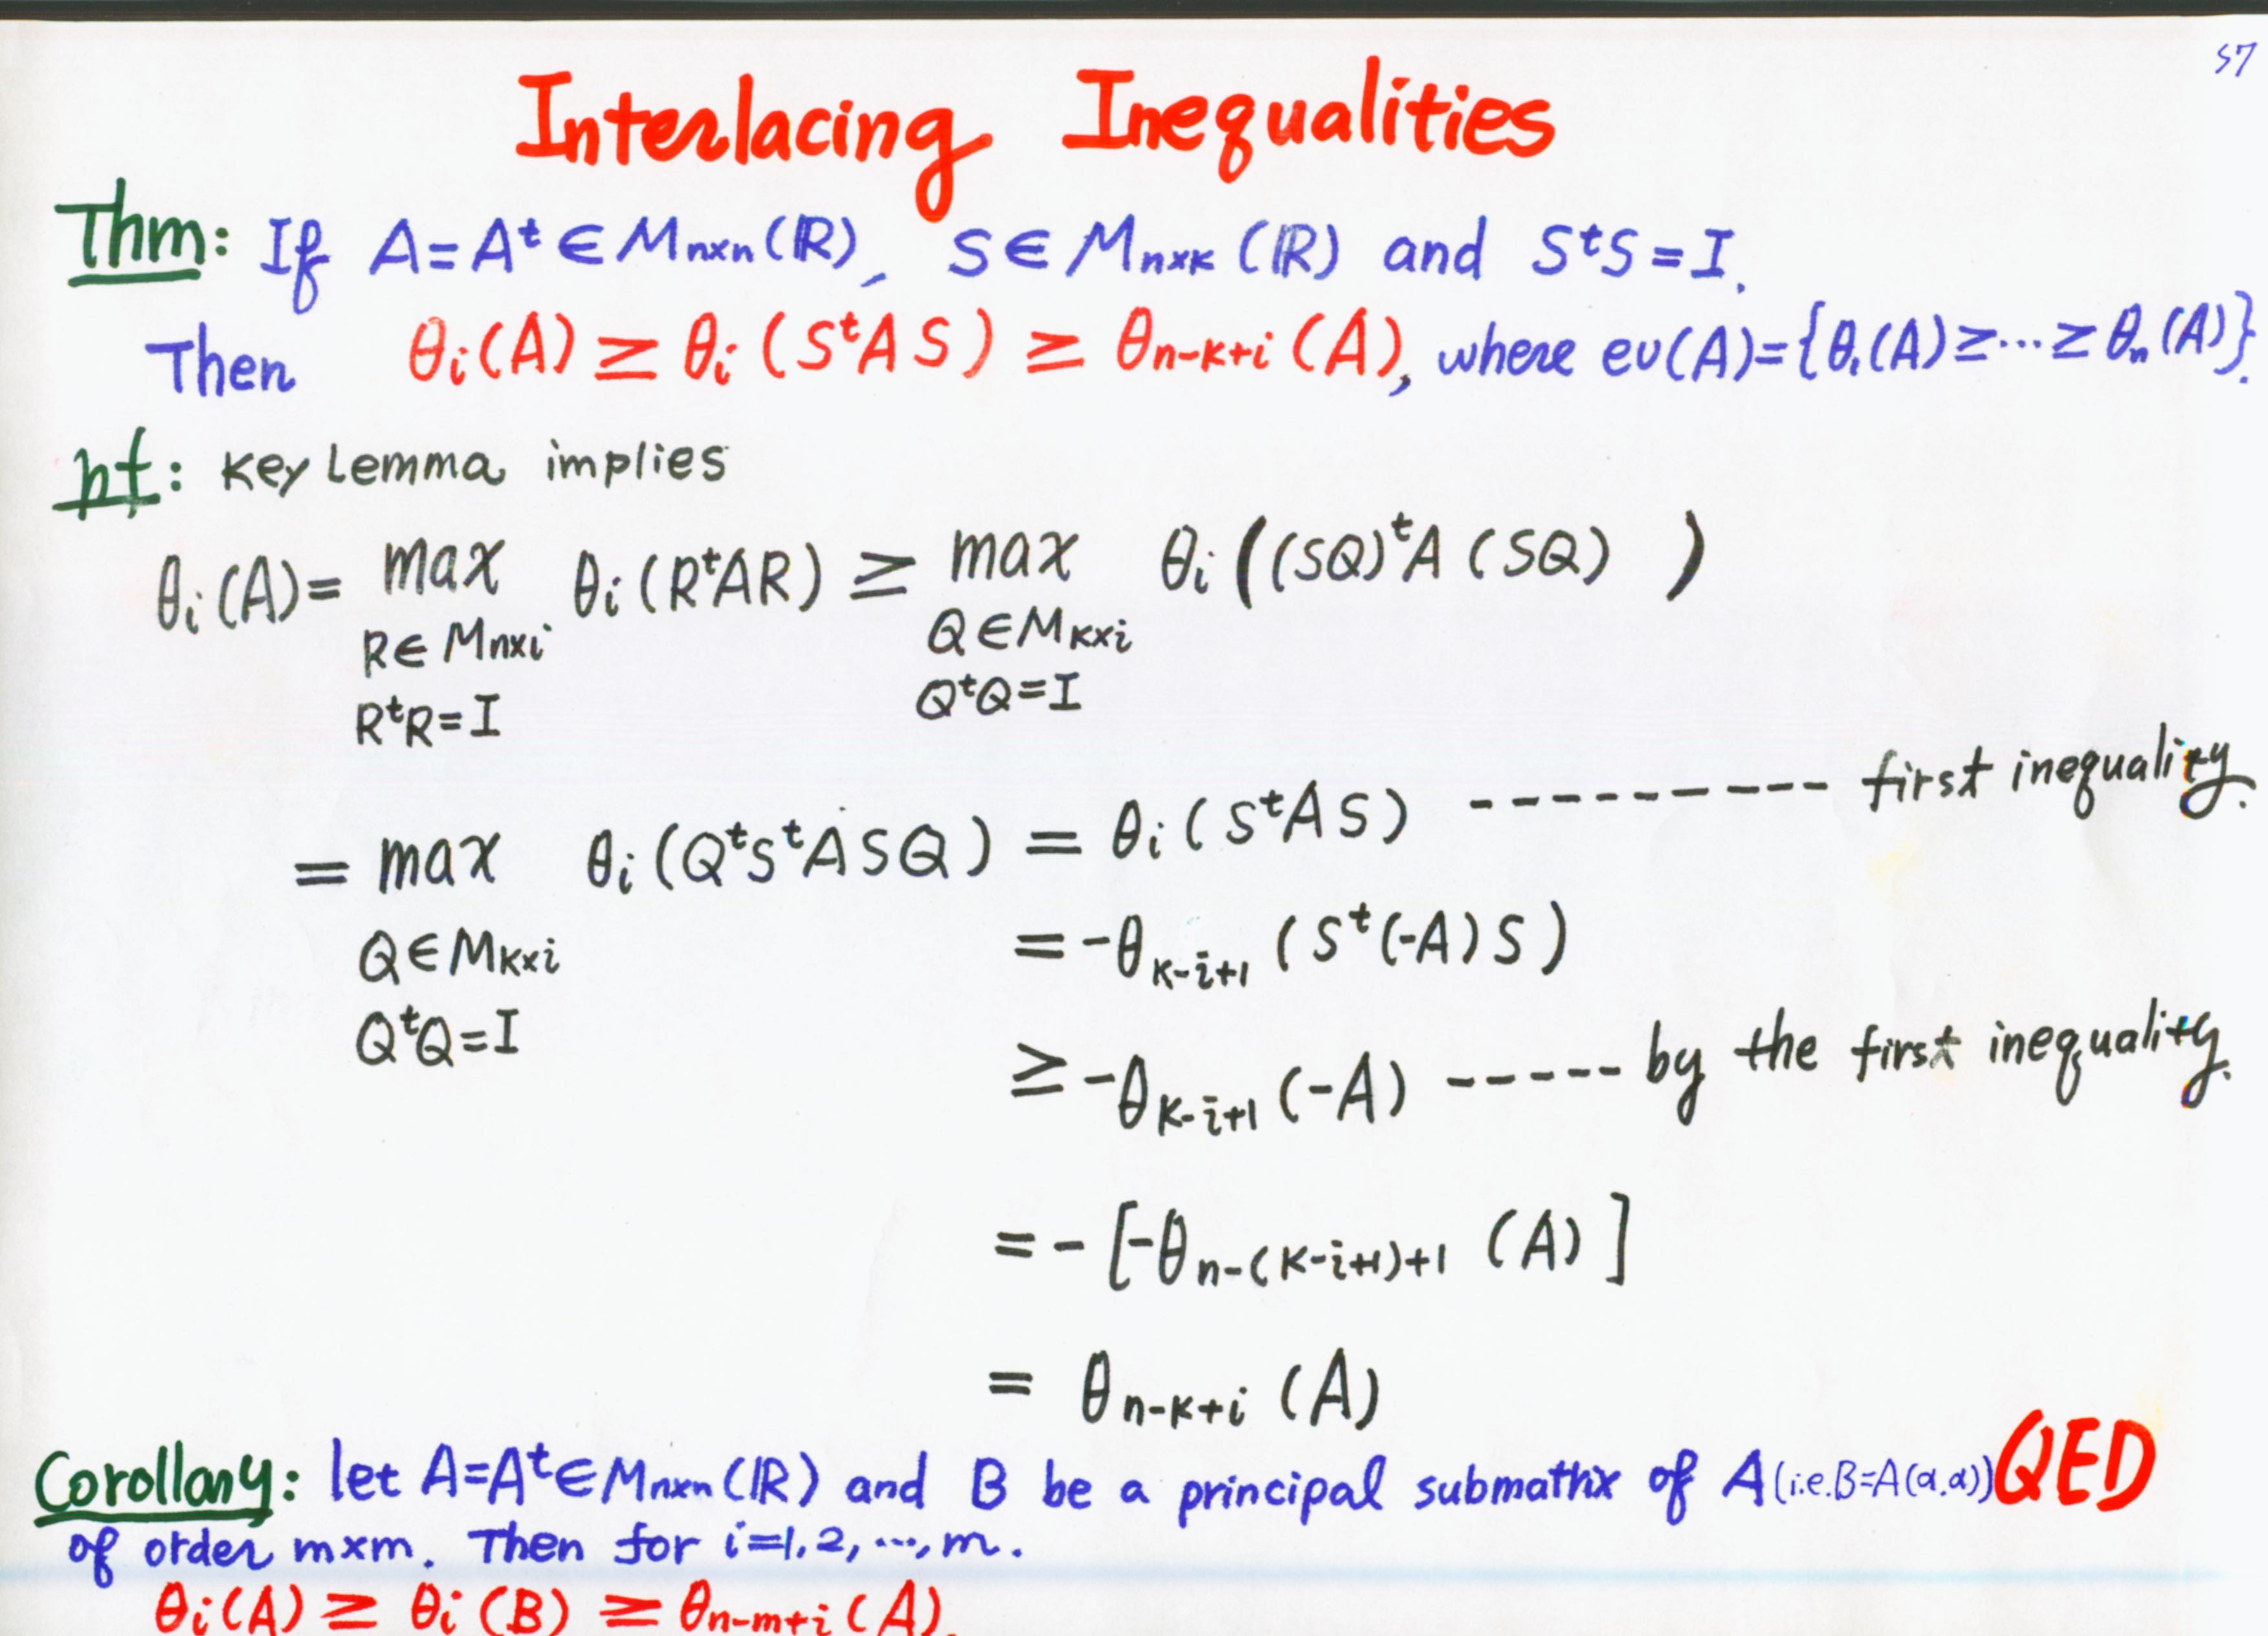 57
Interlacing Inequalities
Thm: If A=Aᵗ∈Mₙₓₙ(ℝ), S∈Mₙₓₖ(ℝ) and SᵗS=I.
Then θᵢ(A) ≥ θᵢ(SᵗAS) ≥ θₙ₋ₖ₊ᵢ(A), where ev(A)={θ₁(A)≥⋯≥θₙ(A)}.
pf: Key Lemma implies
θᵢ(A)= max θᵢ(RᵗAR) ≥ max θᵢ((SQ)ᵗA(SQ))
R∈Mₙₓᵢ Q∈Mₖₓᵢ
RᵗR=I QᵗQ=I
= max θᵢ(QᵗSᵗASQ) = θᵢ(SᵗAS) ---------- first inequality.
Q∈Mₖₓᵢ
QᵗQ=I
= -θₖ₋ᵢ₊₁(Sᵗ(-A)S)
≥ -θₖ₋ᵢ₊₁(-A) ----- by the first inequality.
= -[-θₙ₋₍ₖ₋ᵢ₊₁₎₊₁(A)]
= θₙ₋ₖ₊ᵢ(A)
QED
Corollary: let A=Aᵗ∈Mₙₓₙ(ℝ) and B be a principal submatrix of A (i.e. B=A(α,α))
of order m×m. Then for i=1,2,⋯,m.
θᵢ(A) ≥ θᵢ(B) ≥ θₙ₋ₘ₊ᵢ(A).